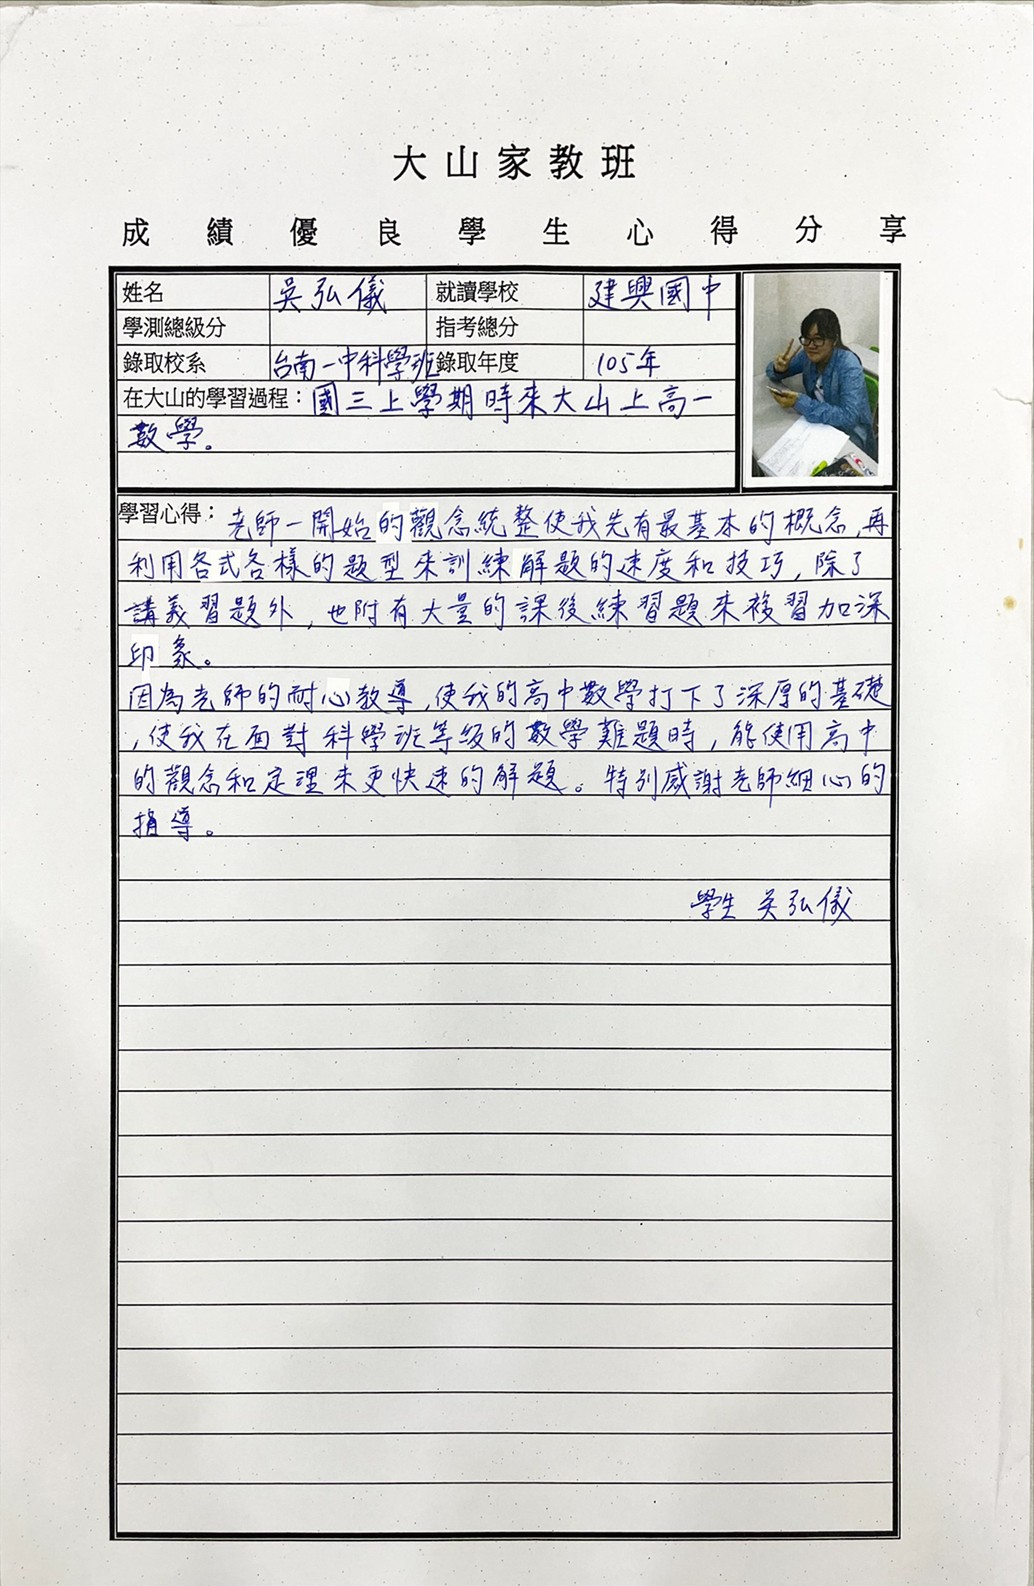 大山家教班
成績優良學生心得分享
姓名 吳弘儀 就讀學校 建興國中
學測總級分 指考總分
錄取校系 台南一中科學班 錄取年度 105年
在大山的學習過程：國三上學期時來大山上高一
數學。
學習心得：老師一開始的觀念統整使我先有最基本的概念,再
利用各式各樣的題型來訓練解題的速度和技巧,除了
講義習題外,也附有大量的課後練習題來複習加深
印象。
因為老師的耐心教導,使我的高中數學打下了深厚的基礎
,使我在面對科學班等級的數學難題時,能使用高中
的觀念和定理來更快速的解題。特別感謝老師細心的
指導。
學生 吳弘儀